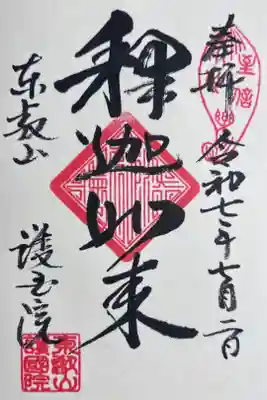 奉拝 令和七年七月二日
釈迦如来
東叡山
護国院
東叡山
護國院